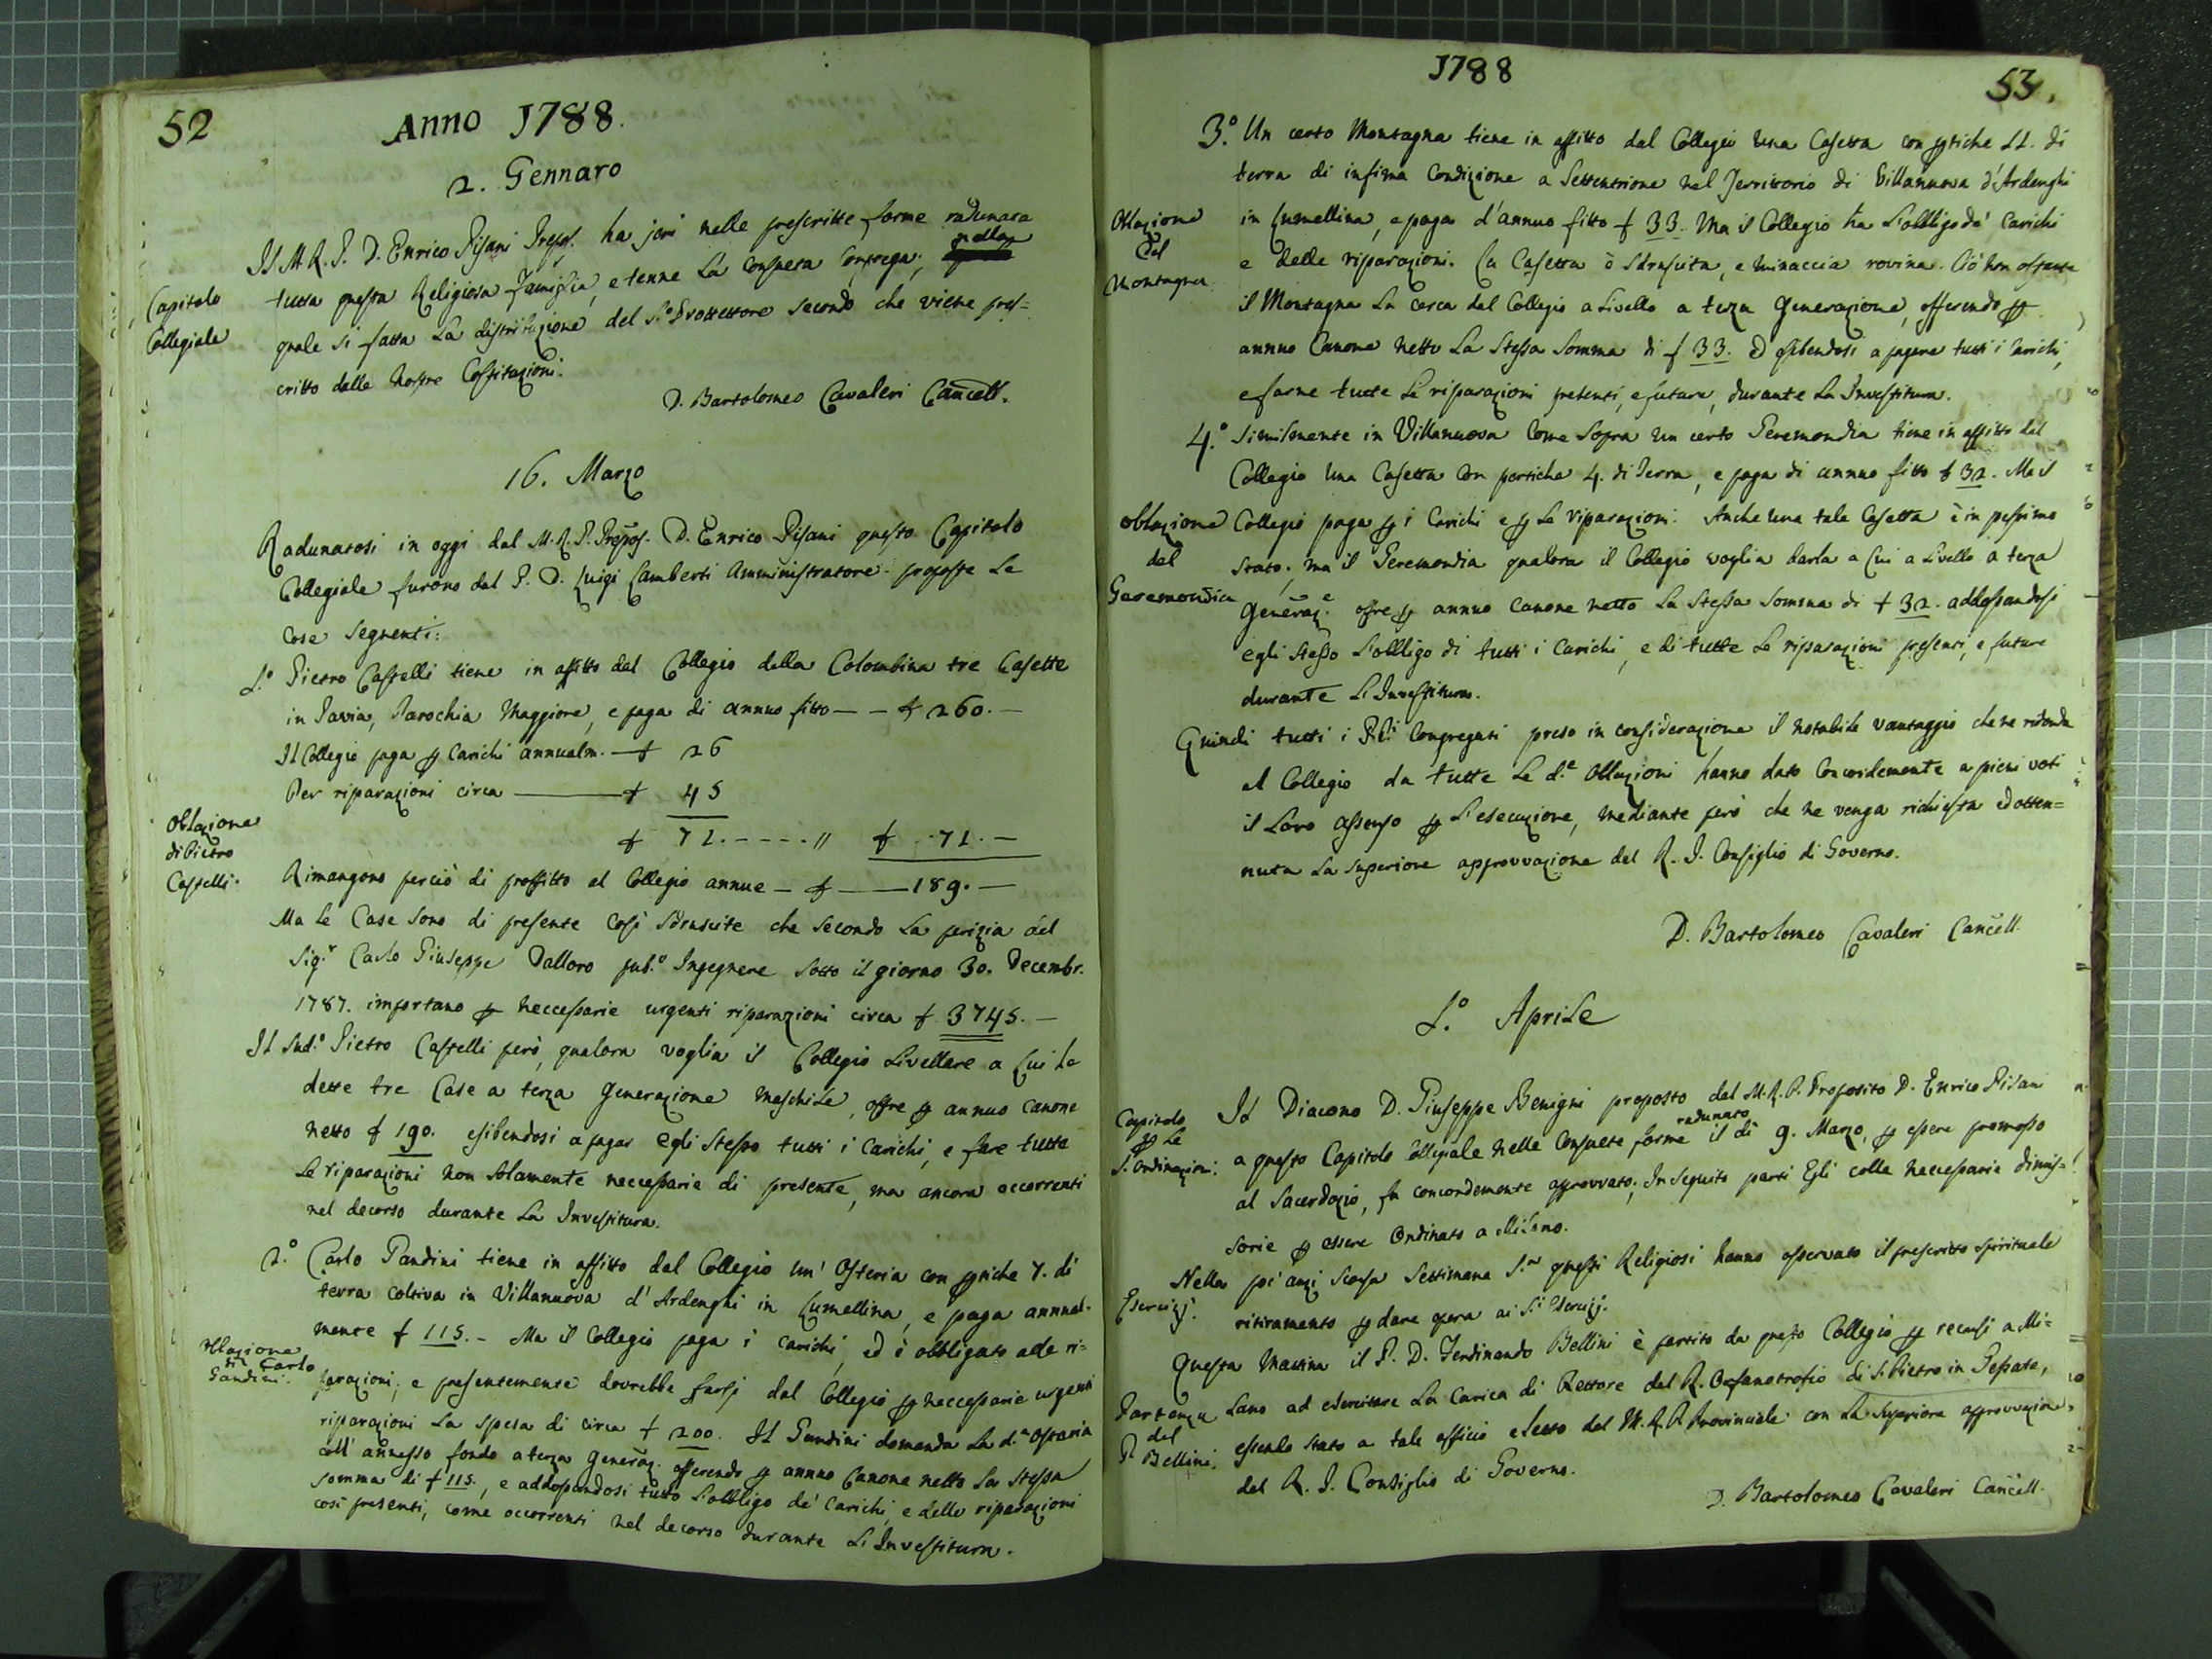 52
Anno 1788.
2. Gennaro
Il M. R. P. D. Enrico Pisani Prepos. ha jeri nelle prescritte forme radunata
Capitolo
Collegiale
tutta questa Religiosa Famiglia, e tenne la consueta Congrega; nella
quale si fatta la distribuzione del S.o Prottettore secondo che viene pres-
critto dalle nostre Costituzioni.
D. Bartolomeo Cavaleri Cancell.
16. Marzo
Radunatosi in oggi dal M. R. P. Prepos. D. Enrico Pisani questo Capitolo
Collegiale furono dal P. D. Luigi Lamberti Amministratore proposte le
cose seguenti:
1.o Pietro Castelli tiene in affitto dal Collegio della Colombina tre Casette
in Pavia, Parochia Maggiore, e paga di annuo fitto — — £ 260. —
Il Collegio paga p carichi annualm. — £ 26
Per riparazioni circa ——— £ 45
£ 71. - - - - - // £ 71. —
Oblazione
di Pietro
Castelli.
Rimangono perciò di proffitto al Collegio annue — £ —— 189. —
Ma le Case sono di presente così sdruscite che secondo la perizia del
Sig.r Carlo Giuseppe Dalloro pub.o Ingegnere sotto il giorno 30. Decembr.
1787. importano p neccessarie urgenti riparazioni circa £ 3745. —
Il Sud.o Pietro Castelli però, qualora voglia il Collegio livellare a Lui le
dette tre Case a terza generazione maschile, offre p annuo canone
netto £ 190. esibendosi a pagar egli stesso tutti i carichi, e fare tutte
le riparazioni non solamente neccessarie di presente, ma ancora occorrenti
nel decorso durante la Investitura.
2.o Carlo Gandini tiene in affitto dal Collegio un' Osteria con pertiche 7. di
terra coltiva in Villanuova d'Ardenghi in Lumellina, e paga annual-
mente £ 115. - Ma il Collegio paga i carichi, ed è obbligato alle ri-
Oblazione
di Carlo
Gandini.
parazioni; e presentemente dovrebbe farsi dal Collegio p neccessarie urgenti
riparazioni la spesa di circa £ 200. Il Gandini domanda la d.a Ostaria
coll' annesso fondo a terza generaz. offerendo p annuo Canone netto la stessa
somma di £ 115., e addossandosi tutto l'obbligo de' carichi, e delle riparazioni
così presenti, come occorrenti nel decorso durante l'Investitura.
1788
53.
3.o Un certo Montagna tiene in affitto dal Collegio una Casetta con pertiche 11. di
terra di infima condizione a settentrione nel Territorio di Villanuova d'Ardenghi
Oblazione
del
Montagna.
in Lumellina, e paga d'annuo fitto £ 33. Ma il Collegio ha l'obbligo de' carichi
e delle riparazioni. La Casetta è sdruscita, e minaccia rovina. Ciò non ostante
il Montagna la cerca dal Collegio a livello a terza generazione, offerendo p
annuo Canone netto la stessa somma di £ 33. ed esibendosi a pagare tutti i carichi,
e farne tutte le riparazioni presenti, e future, durante la Investitura.
4.o Similmente in Villanuova come sopra un certo Geremondia tiene in affitto dal
Collegio una Casetta con pertiche 4. di terra, e paga di annuo fitto £ 32. Ma il
Oblazione
del
Geremondia
Collegio paga p i carichi e p le riparazioni. Anche una tale Casetta è in pessimo
stato; ma il Geremondia qualora il Collegio voglia darla a Lui a livello a terza
generaz.e offre p annuo canone netto la stessa somma di £ 32. addossandosi
egli stesso l'obbligo di tutti i carichi, e di tutte le riparazioni presenti, e future
durante l'Investitura.
Quindi tutti i PP.i Congregati preso in considerazione il notabile vantaggio che ne ridonda
al Collegio da tutte le d.e Oblazioni hanno dato concordemente a pieni voti
il loro assenso p l'esecuzione, mediante però che ne venga richiesta ed otten-
nuta la superiore approvvazione del R. I. Consiglio di Governo.
D. Bartolomeo Cavaleri Cancell.
1.o Aprile
Capitolo
p le
S. Ordinazioni.
Il Diacono D. Giuseppe Benigni proposto dal M. R. P. Proposito D. Enrico Pisani
a questo Capitolo Collegiale nelle consuete forme radunato il dì 9. Marzo, p essere promosso
al Sacerdozio, fu concordemente approvvato; In seguito partì Egli colle neccessarie dimis-
sorie p essere Ordinato a Milano.
Esercizj.
Nella poc'anzi scorsa Settimana S.a questi Religiosi hanno osservato il prescritto spirituale
ritiramento p dare opera ai S.i Esercizj.
Partenza
del
P. Bellini.
Questa Mattina il P. D. Ferdinando Bellini è partito da questo Collegio p recarsi a Mi-
lano ad esercitare la Carica di Rettore del R. Orfanotrofio di S. Pietro in Gessate,
essendo stato a tale officio eletto dal M. R. P. Provinciale con la Superiore approvvazione
del R. I. Consiglio di Governo.
D. Bartolomeo Cavaleri Cancell.